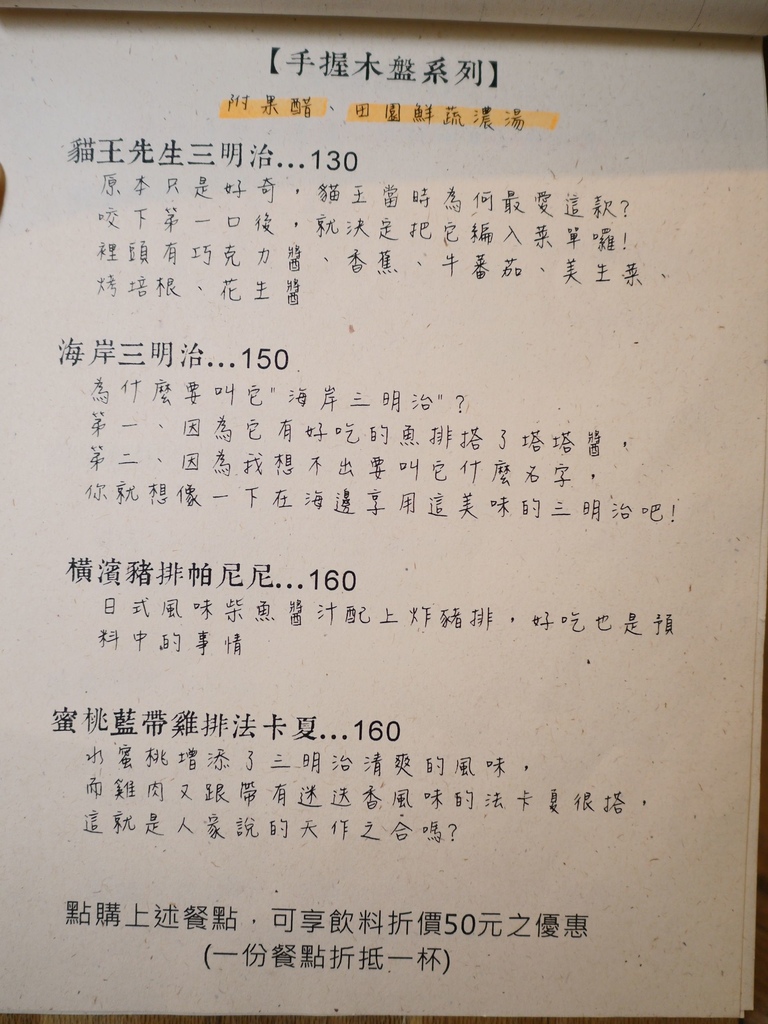 【手握木盤系列】
附果醋、田園鮮蔬濃湯
貓王先生三明治...130
原本只是好奇，貓王當時為何最愛這款？
咬下第一口後，就決定把它編入菜單囉！
裡頭有巧克力醬、香蕉、牛蕃茄、美生菜、
烤培根、花生醬
海岸三明治...150
為什麼要叫它"海岸三明治"？
第一、因為它有好吃的魚排搭了塔塔醬，
第二、因為我想不出要叫它什麼名字，
你就想像一下在海邊享用這美味的三明治吧！
橫濱豬排帕尼尼...160
日式風味柴魚醬汁配上炸豬排，好吃也是預
料中的事情
蜜桃藍帶雞排法卡夏...160
水蜜桃增添了三明治清爽的風味，
而雞肉又跟帶有迷迭香風味的法卡夏很搭，
這就是人家說的天作之合嗎？
點購上述餐點，可享飲料折價50元之優惠
(一份餐點折抵一杯)